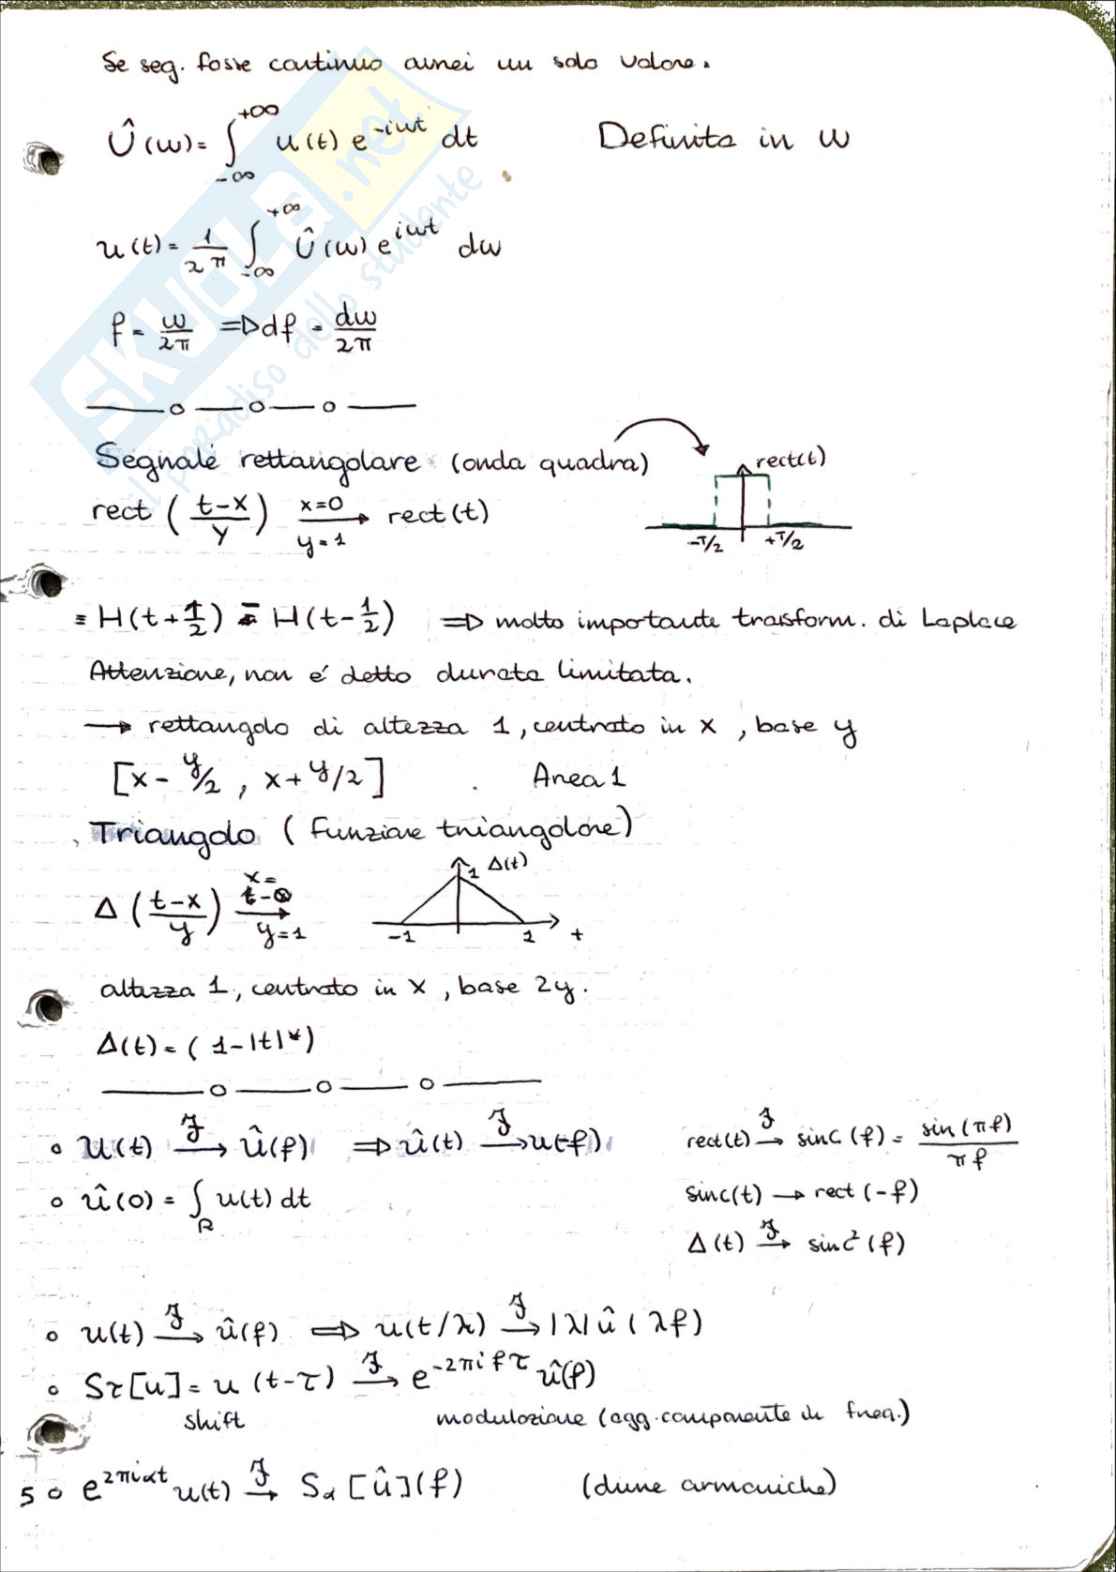 Se seg. fosse continuo avrei un solo valore.
Û(ω) = ∫_{-∞}^{+∞} u(t) e^{-iωt} dt Definita in ω
u(t) = 1/2π ∫_{-∞}^{+∞} Û(ω) e^{iωt} dω
f = ω/2π ⇒ df = dω/2π
Segnale rettangolare (onda quadra)
rect(t)
rect ((t-x)/y) x=0 y=1 → rect(t)
-T/2 +T/2
= H(t+1/2) - H(t-1/2) ⇒ molto importante trasform. di Laplace
Attenzione, non é detto durata limitata.
→ rettangolo di altezza 1, centrato in x, base y
[x - y/2, x + y/2] Area 1
Triangolo (Funzione triangolare)
Δ ((t-x)/y) → y=1
1 Δ(t)
-1 1 t
altezza 1, centrato in x, base 2y.
Δ(t) = (1-|t|⁺)
∘ u(t) ℱ→ û(f) ⇒ û(t) ℱ→ u(-f)
rect(t) ℱ→ sinc(f) = sin(πf)/πf
∘ û(0) = ∫_R u(t) dt
sinc(t) → rect(-f)
Δ(t) ℱ→ sinc²(f)
∘ u(t) ℱ→ û(f) ⇒ u(t/λ) ℱ→ |λ| û(λf)
∘ Sτ[u] = u(t-τ) ℱ→ e^{-2πifτ} û(f)
shift modulazione (agg. componente in freq.)
5 ∘ e^{2πiαt} u(t) ℱ→ S_α[û](f) (dune armoniche)
SKUOLA.net
il paradiso dello studente